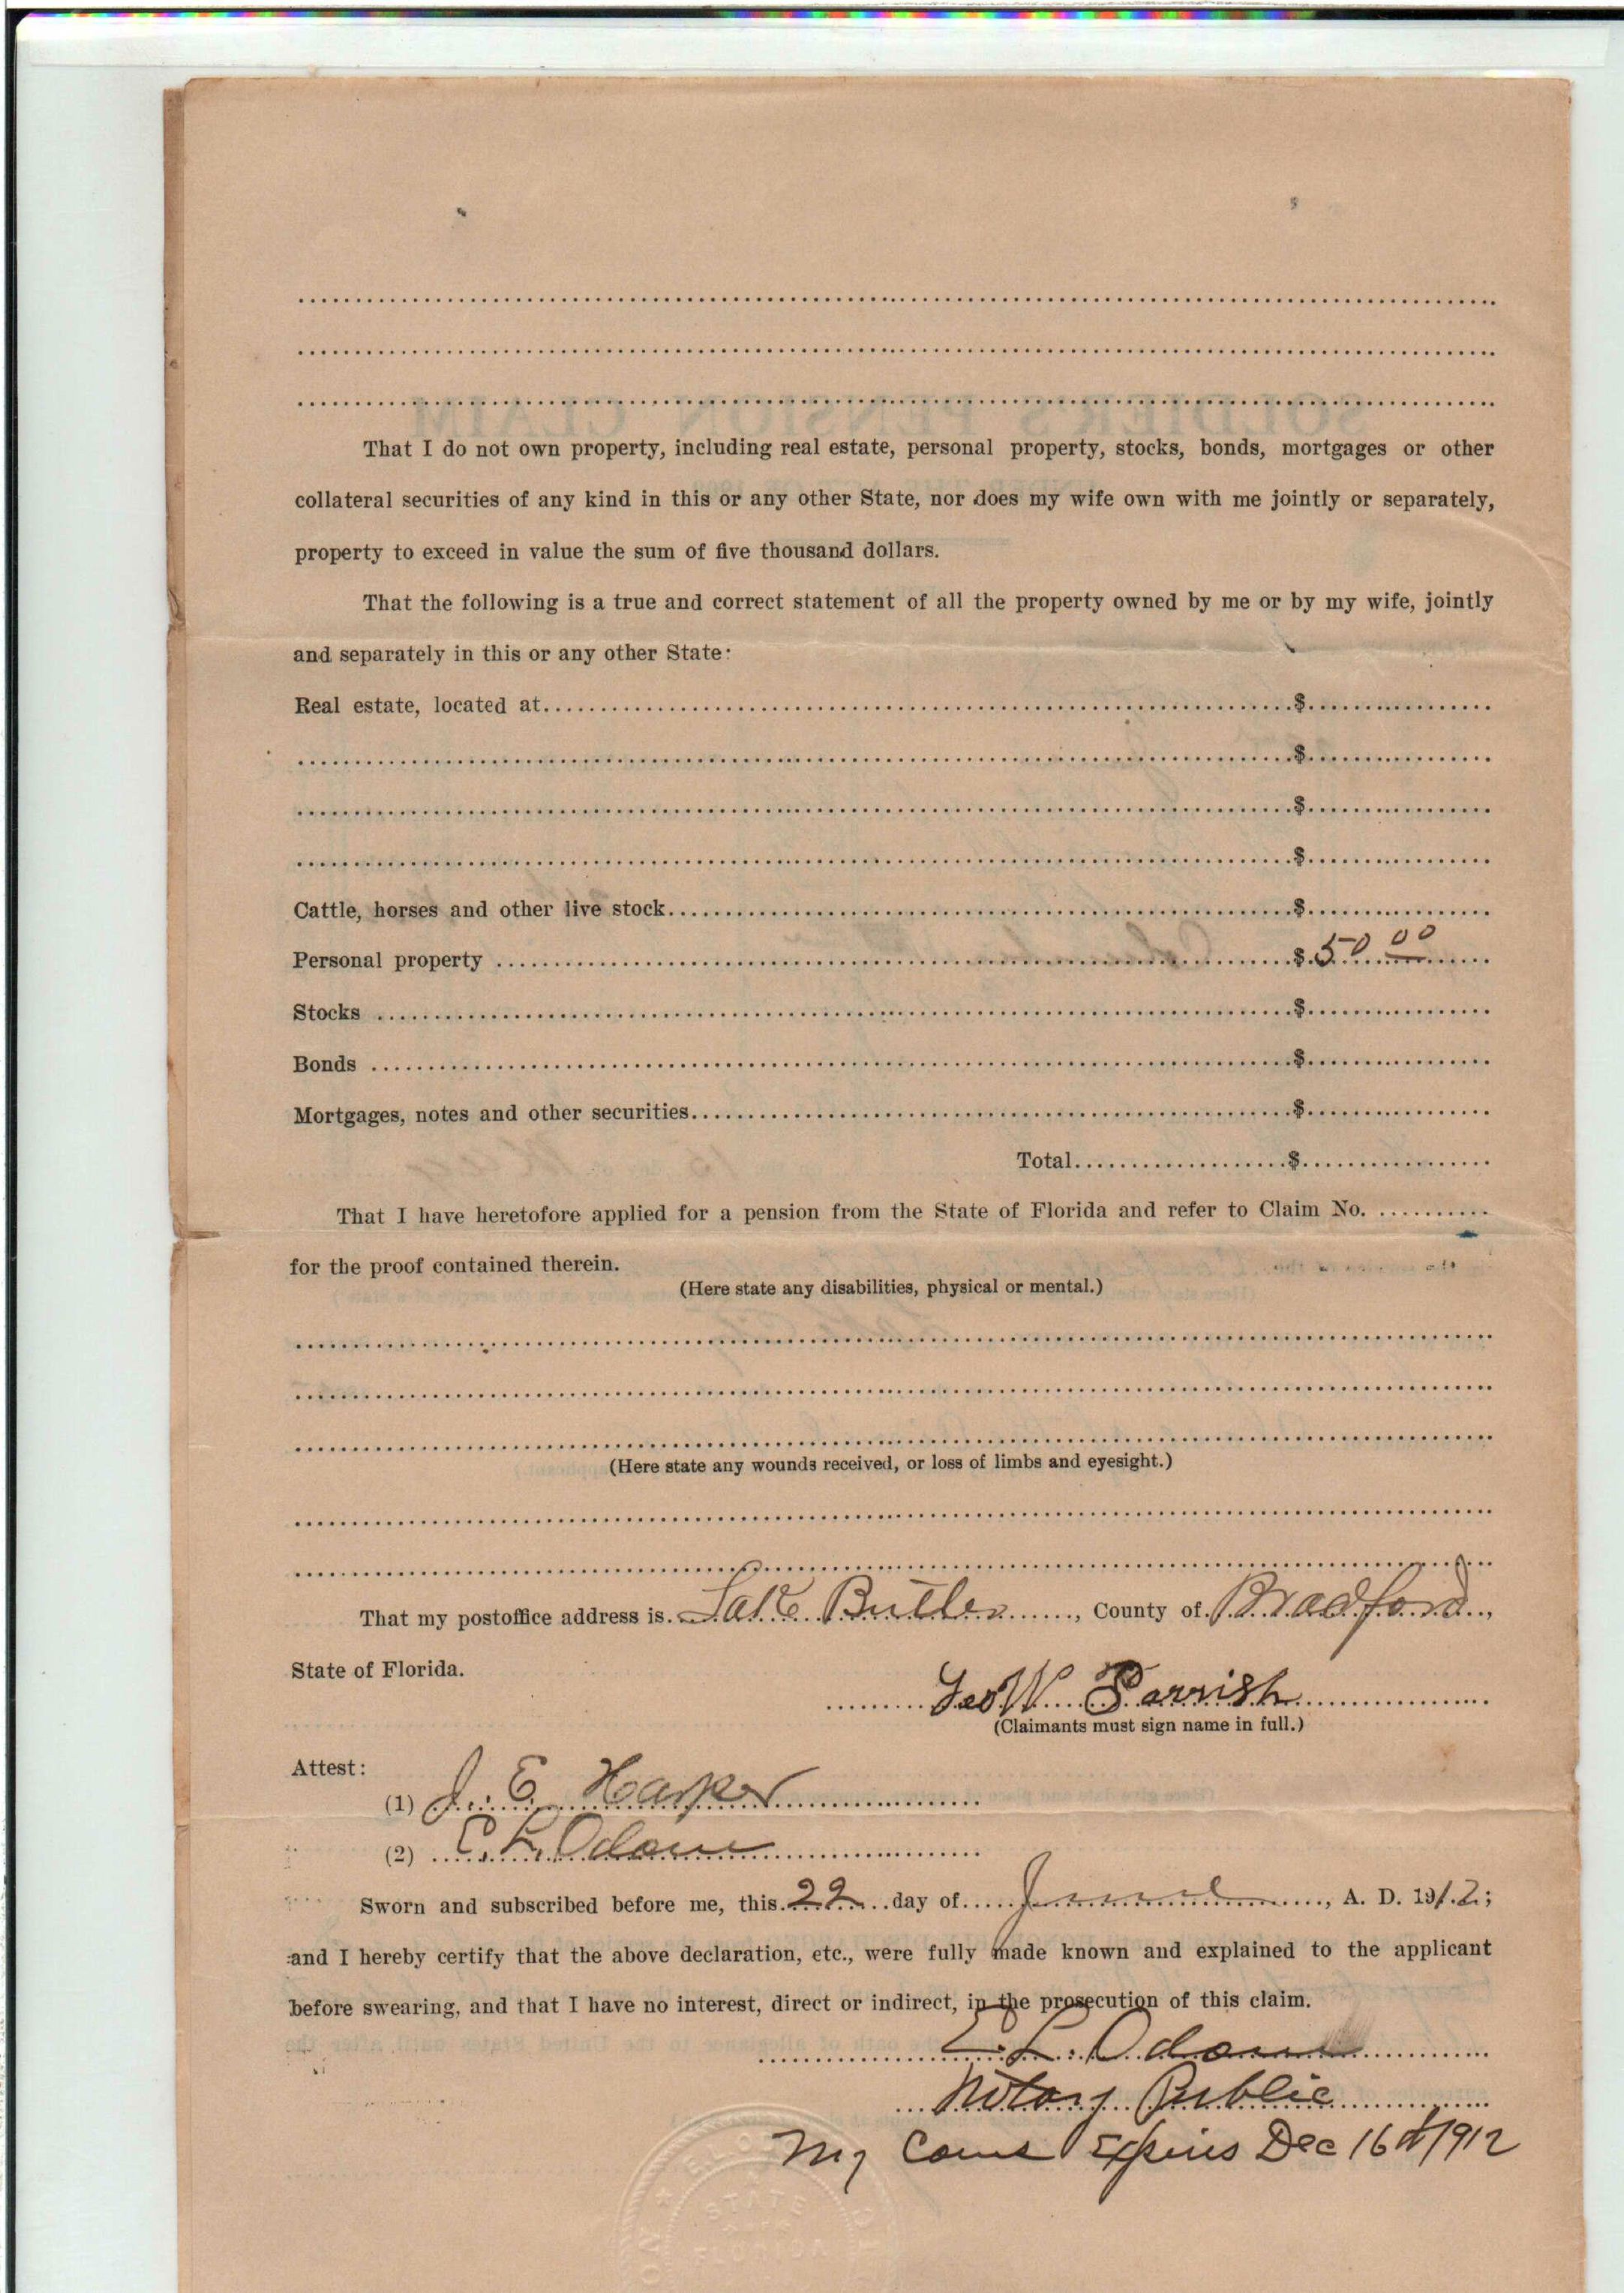 That I do not own property, including real estate, personal property, stocks, bonds, mortgages or other
collateral securities of any kind in this or any other State, nor does my wife own with me jointly or separately,
property to exceed in value the sum of five thousand dollars.
That the following is a true and correct statement of all the property owned by me or by my wife, jointly
and separately in this or any other State:
Real estate, located at $
$
$
$
Cattle, horses and other live stock $
Personal property $ 50 00
Stocks $
Bonds $
Mortgages, notes and other securities $
Total $
That I have heretofore applied for a pension from the State of Florida and refer to Claim No.
for the proof contained therein.
(Here state any disabilities, physical or mental.)
(Here state any wounds received, or loss of limbs and eyesight.)
That my postoffice address is Lake Butler, County of Bradford,
State of Florida.
Geo W. Parrish
(Claimants must sign name in full.)
Attest:
(1) J. E. Harper
(2) E. L. Odom
Sworn and subscribed before me, this 22 day of June, A. D. 1912;
and I hereby certify that the above declaration, etc., were fully made known and explained to the applicant
before swearing, and that I have no interest, direct or indirect, in the prosecution of this claim.
E. L. Odom
Notary Public
My Coms Expires Dec 16th 1912
STATE
FLORIDA